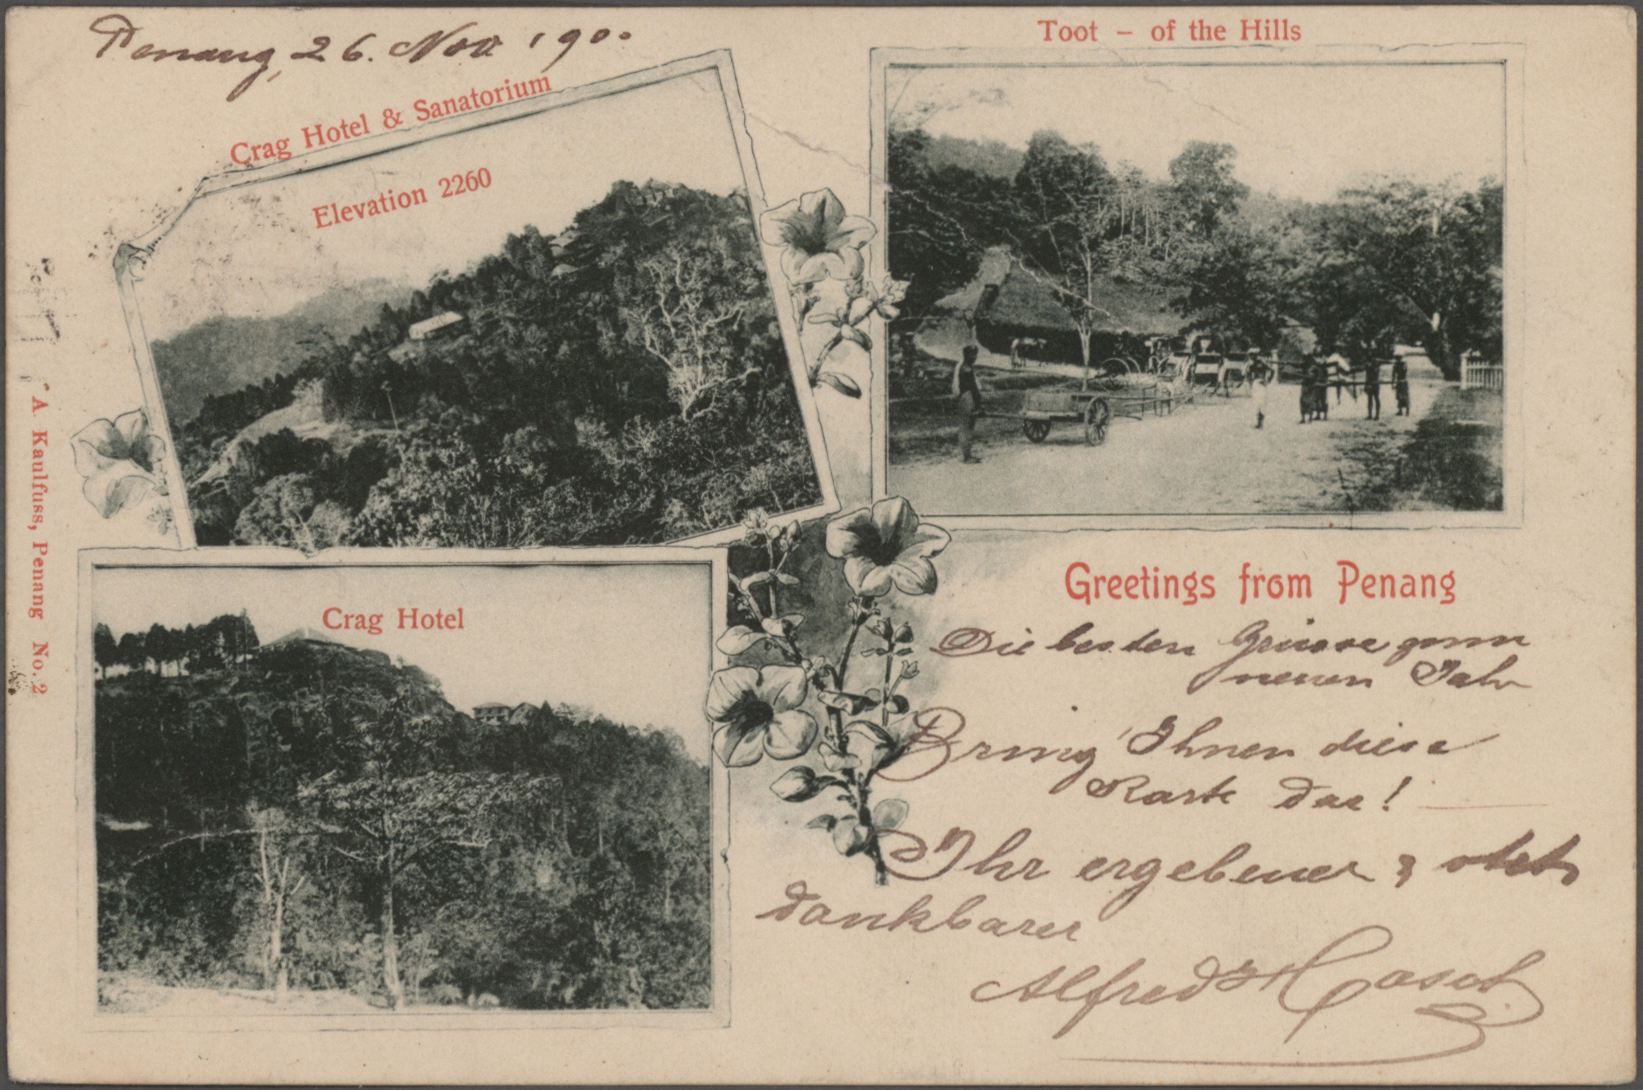 Penang, 26. Nov 1900
Crag Hotel & Sanatorium
Elevation 2260
Toot – of the Hills
Crag Hotel
A. Kaulfuss, Penang No. 2
Greetings from Penang
Die besten Grüsse zum
neuen Jahr
Bring Ihnen diese
Karte dar!
Ihr ergebener & stets
dankbarer
Alfred